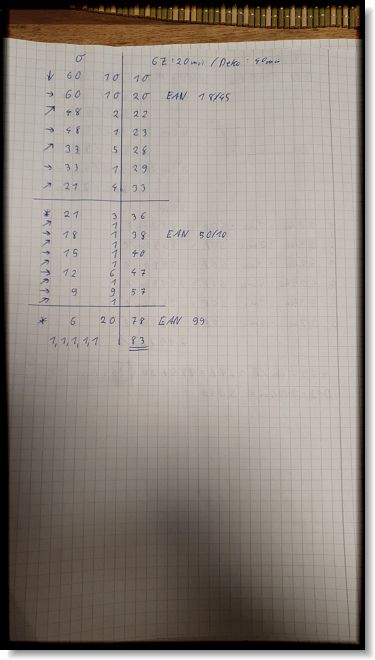 GZ: 20 min / Deko: 40 min
↓ 60 10 10
→ 60 10 20 EAN 18/45
↗ 48 2 22
→ 48 1 23
↗ 33 5 28
→ 33 1 29
↗ 21 4 33
* 21 3 36
↗ 1
→ 18 1 38 EAN 50/10
↗ 1
→ 15 1 40
↗ 1
→ 12 6 47
↗ 1
→ 9 9 57
↗ 1
* 6 20 78 EAN 99
1, 1, 1, 1, 1 83